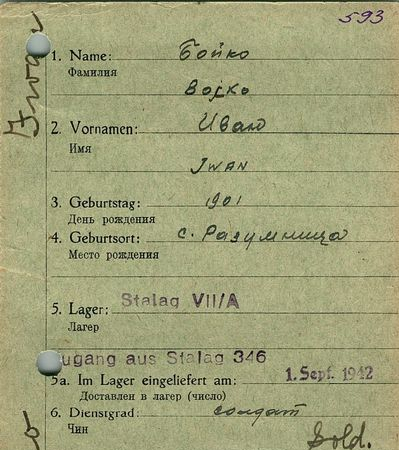 593
1. Name: Бойко
Фамилия
Bojko
2. Vornamen: Иван
Имя
Iwan
3. Geburtstag: 1901
День рождения
4. Geburtsort: с. Разумница
Место рождения
5. Lager: Stalag VII/A
Лагер
Zugang aus Stalag 346
5a. Im Lager eingeliefert am: 1. Sept. 1942
Доставлен в лагер (число)
6. Dienstgrad: солдат
Чин
Sold.